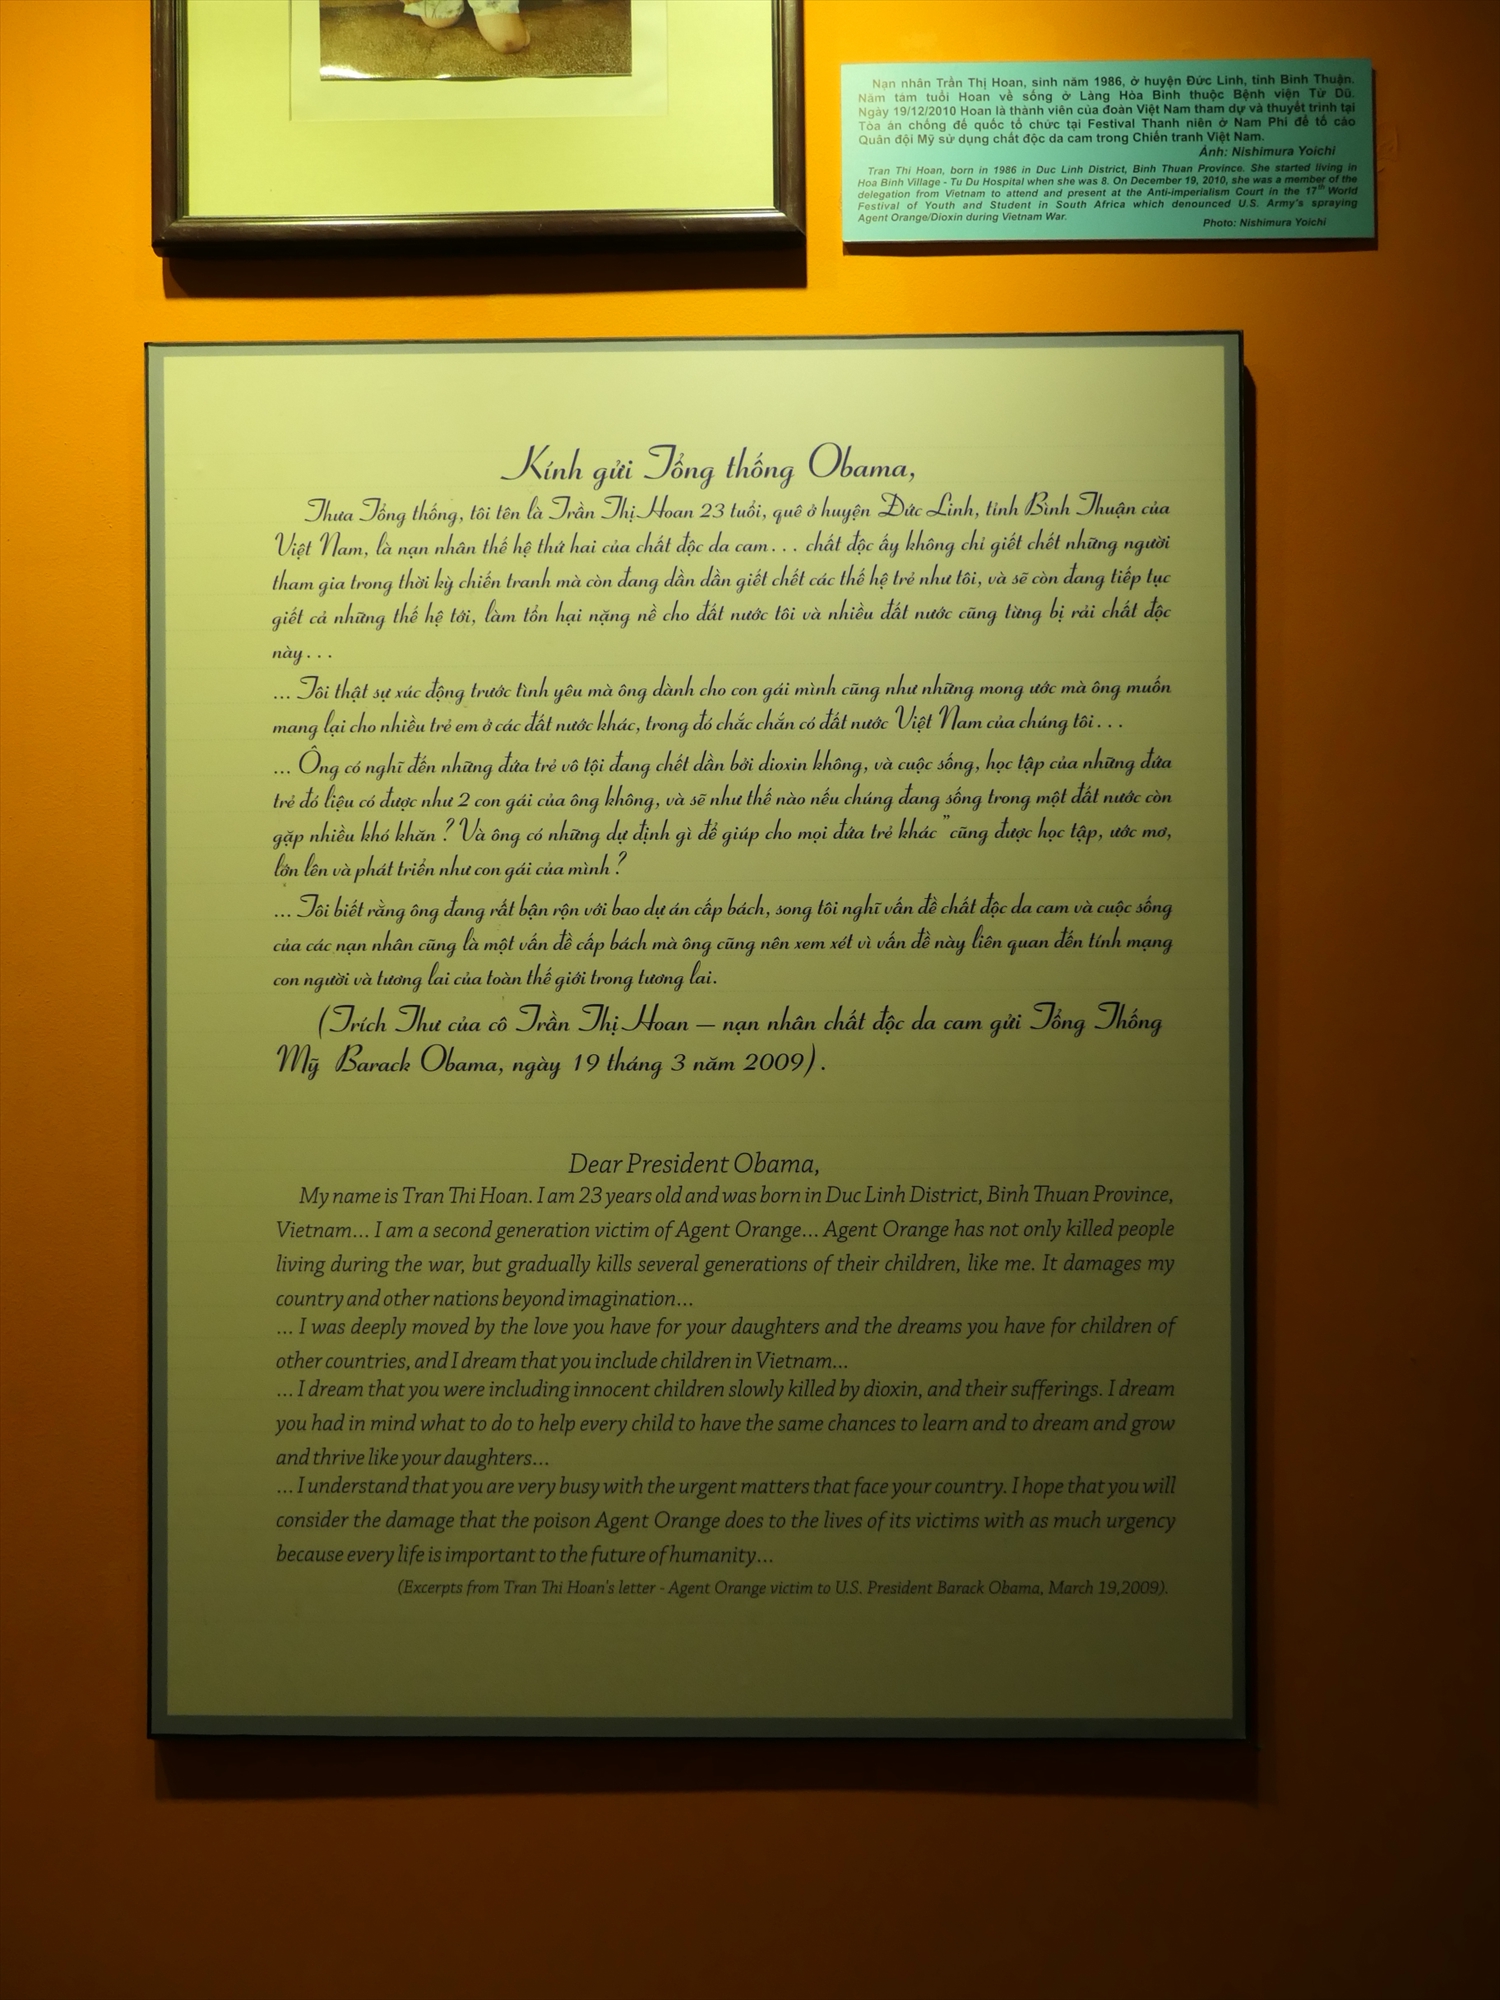 Nạn nhân Trần Thị Hoan, sinh năm 1986, ở huyện Đức Linh, tỉnh Bình Thuận.
Năm tám tuổi Hoan về sống ở Làng Hòa Bình thuộc Bệnh viện Từ Dũ.
Ngày 19/12/2010 Hoan là thành viên của đoàn Việt Nam tham dự và thuyết trình tại
Tòa án chống đế quốc tổ chức tại Festival Thanh niên ở Nam Phi để tố cáo
Quân đội Mỹ sử dụng chất độc da cam trong Chiến tranh Việt Nam.
Ảnh: Nishimura Yoichi
Tran Thi Hoan, born in 1986 in Duc Linh District, Binh Thuan Province. She started living in
Hoa Binh Village - Tu Du Hospital when she was 8. On December 19, 2010, she was a member of the
delegation from Vietnam to attend and present at the Anti-imperialism Court in the 17th World
Festival of Youth and Student in South Africa which denounced U.S. Army's spraying
Agent Orange/Dioxin during Vietnam War.
Photo: Nishimura Yoichi
Kính gửi Tổng thống Obama,
Thưa Tổng thống, tôi tên là Trần Thị Hoan 23 tuổi, quê ở huyện Đức Linh, tỉnh Bình Thuận của
Việt Nam, là nạn nhân thế hệ thứ hai của chất độc da cam... chất độc ấy không chỉ giết chết những người
tham gia trong thời kỳ chiến tranh mà còn đang dần dần giết chết các thế hệ trẻ như tôi, và sẽ còn đang tiếp tục
giết cả những thế hệ tới, làm tổn hại nặng nề cho đất nước tôi và nhiều đất nước cũng từng bị rải chất độc
này...
... Tôi thật sự xúc động trước tình yêu mà ông dành cho con gái mình cũng như những mong ước mà ông muốn
mang lại cho nhiều trẻ em ở các đất nước khác, trong đó chắc chắn có đất nước Việt Nam của chúng tôi...
... Ông có nghĩ đến những đứa trẻ vô tội đang chết dần bởi dioxin không, và cuộc sống, học tập của những đứa
trẻ đó liệu có được như 2 con gái của ông không, và sẽ như thế nào nếu chúng đang sống trong một đất nước còn
gặp nhiều khó khăn ? Và ông có những dự định gì để giúp cho mọi đứa trẻ khác "cũng được học tập, ước mơ,
lớn lên và phát triển như con gái của mình ?
... Tôi biết rằng ông đang rất bận rộn với bao dự án cấp bách, song tôi nghĩ vấn đề chất độc da cam và cuộc sống
của các nạn nhân cũng là một vấn đề cấp bách mà ông cũng nên xem xét vì vấn đề này liên quan đến tính mạng
con người và tương lai của toàn thế giới trong tương lai.
(Trích Thư của cô Trần Thị Hoan – nạn nhân chất độc da cam gửi Tổng Thống
Mỹ Barack Obama, ngày 19 tháng 3 năm 2009).
Dear President Obama,
My name is Tran Thi Hoan. I am 23 years old and was born in Duc Linh District, Binh Thuan Province,
Vietnam... I am a second generation victim of Agent Orange... Agent Orange has not only killed people
living during the war, but gradually kills several generations of their children, like me. It damages my
country and other nations beyond imagination...
... I was deeply moved by the love you have for your daughters and the dreams you have for children of
other countries, and I dream that you include children in Vietnam...
... I dream that you were including innocent children slowly killed by dioxin, and their sufferings. I dream
you had in mind what to do to help every child to have the same chances to learn and to dream and grow
and thrive like your daughters...
... I understand that you are very busy with the urgent matters that face your country. I hope that you will
consider the damage that the poison Agent Orange does to the lives of its victims with as much urgency
because every life is important to the future of humanity...
(Excerpts from Tran Thi Hoan's letter - Agent Orange victim to U.S. President Barack Obama, March 19,2009).